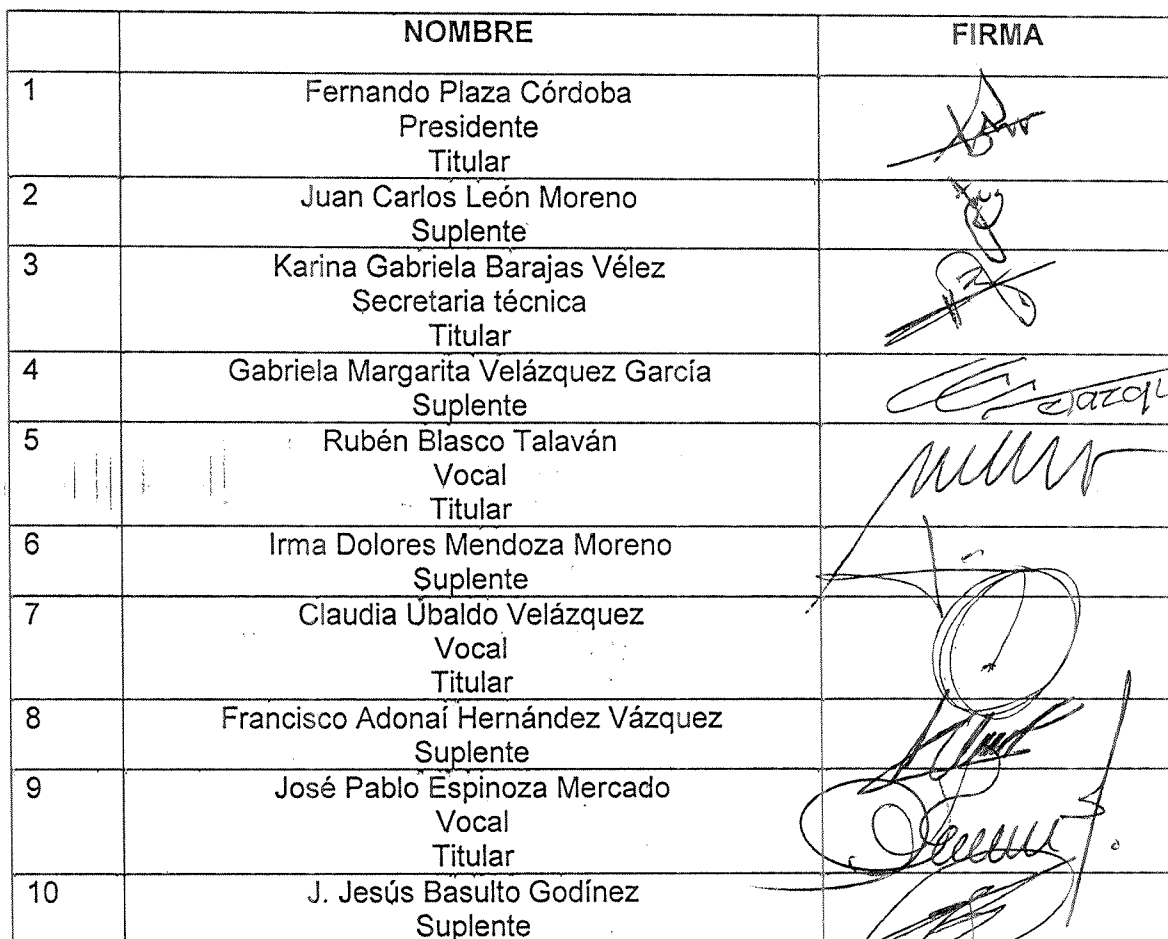 NOMBRE FIRMA
1 Fernando Plaza Córdoba
Presidente
Titular
2 Juan Carlos León Moreno
Suplente
3 Karina Gabriela Barajas Vélez
Secretaria técnica
Titular
4 Gabriela Margarita Velázquez García
Suplente
5 Rubén Blasco Talaván
Vocal
Titular
6 Irma Dolores Mendoza Moreno
Suplente
7 Claudia Ubaldo Velázquez
Vocal
Titular
8 Francisco Adonaí Hernández Vázquez
Suplente
9 José Pablo Espinoza Mercado
Vocal
Titular
10 J. Jesús Basulto Godínez
Suplente